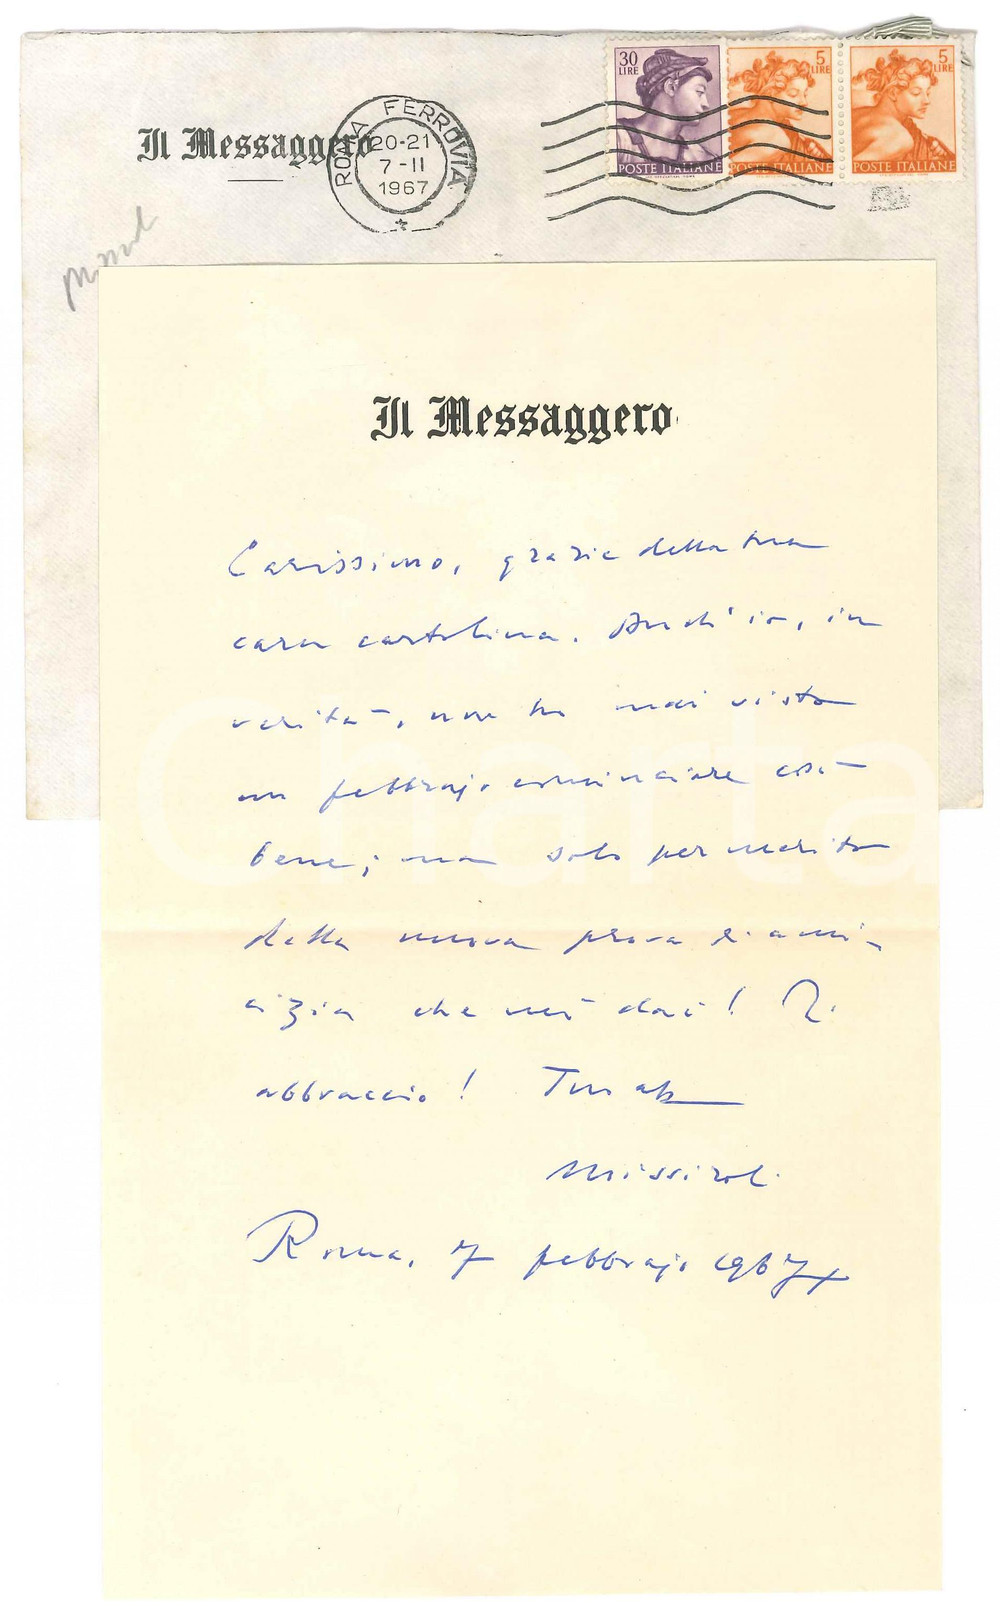 Il Messaggero
ROMA FERROVIA
20-21
7-II
1967
30
LIRE
POSTE ITALIANE
5
LIRE
POSTE ITALIANE
5
LIRE
POSTE ITALIANE
Il Messaggero
Carissimo, grazie della tua
cara cartolina. Anch'io, in
verità, non ho mai visto
un febbrajo cominciare così
bene; ma solo per merito
della nuova prova di ami-
cizia che mi dai! Ti
abbraccio! Tuo aff
Missiroli
Roma, 7 febbrajo 1967
Charta